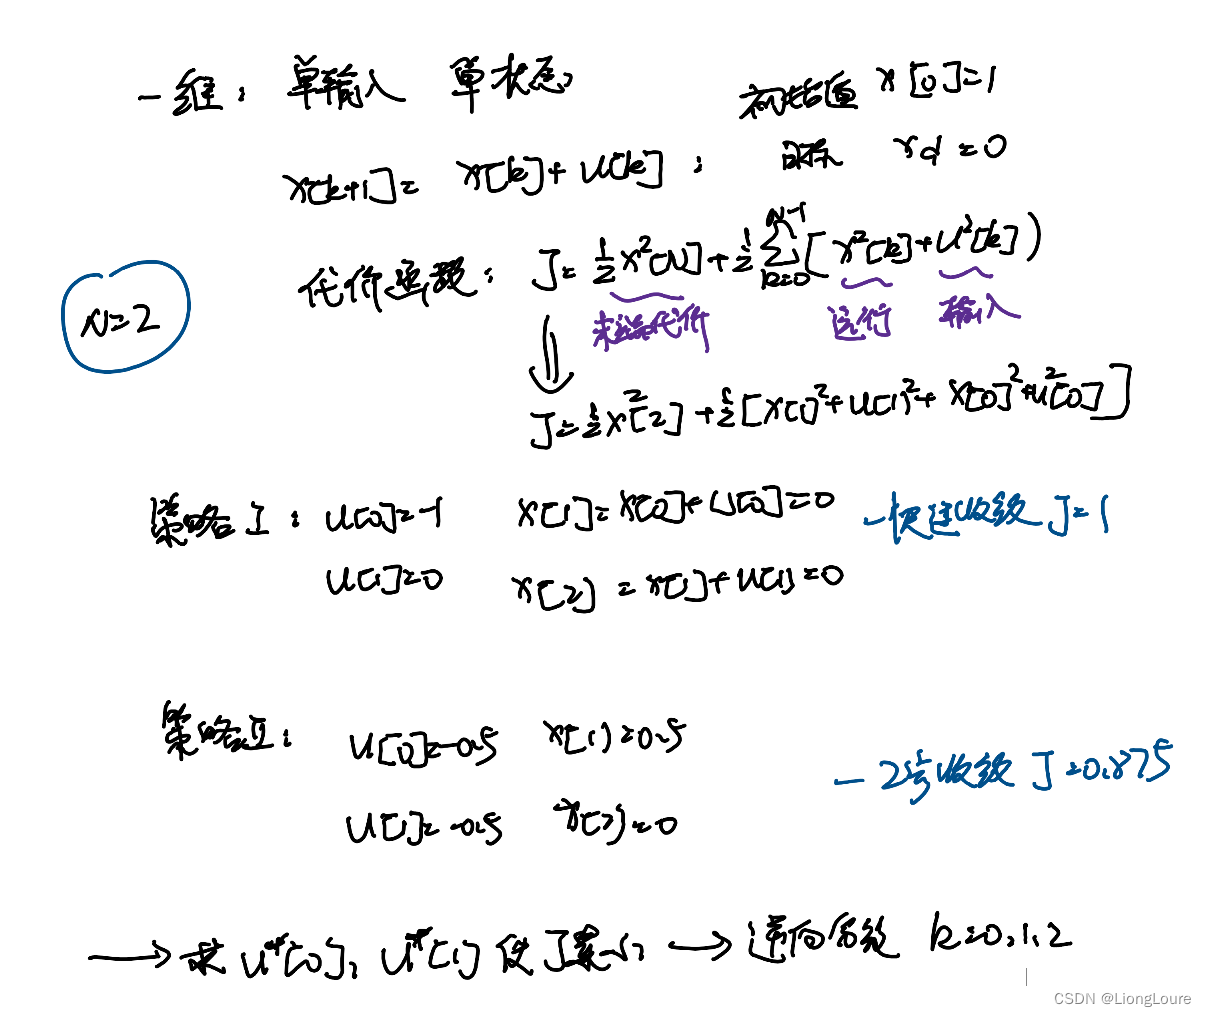 一维：单输入 单状态 初始值 x[0]=1
x[k+1]= x[k]+u[k]； 目标 xd=0
代价函数：J=½x²[N]+½∑_{k=0}^{N-1}[x²[k]+u²[k])
N=2
末端代价 运行 输入
⇓
J=½x²[2]+½[x[1]²+u[1]²+x[0]²+u²[0]]
策略I：u[0]=-1 x[1]=x[0]+u[0]=0 —快速收敛 J=1
u[1]=0 x[2]=x[1]+u[1]=0
策略II：u[0]=-0.5 x[1]=0.5
—2步收敛 J=0.875
u[1]=-0.5 x[2]=0
→求 u*[0], u*[1] 使J最小 → 逆向分级 k=0,1,2
CSDN @LiongLoure